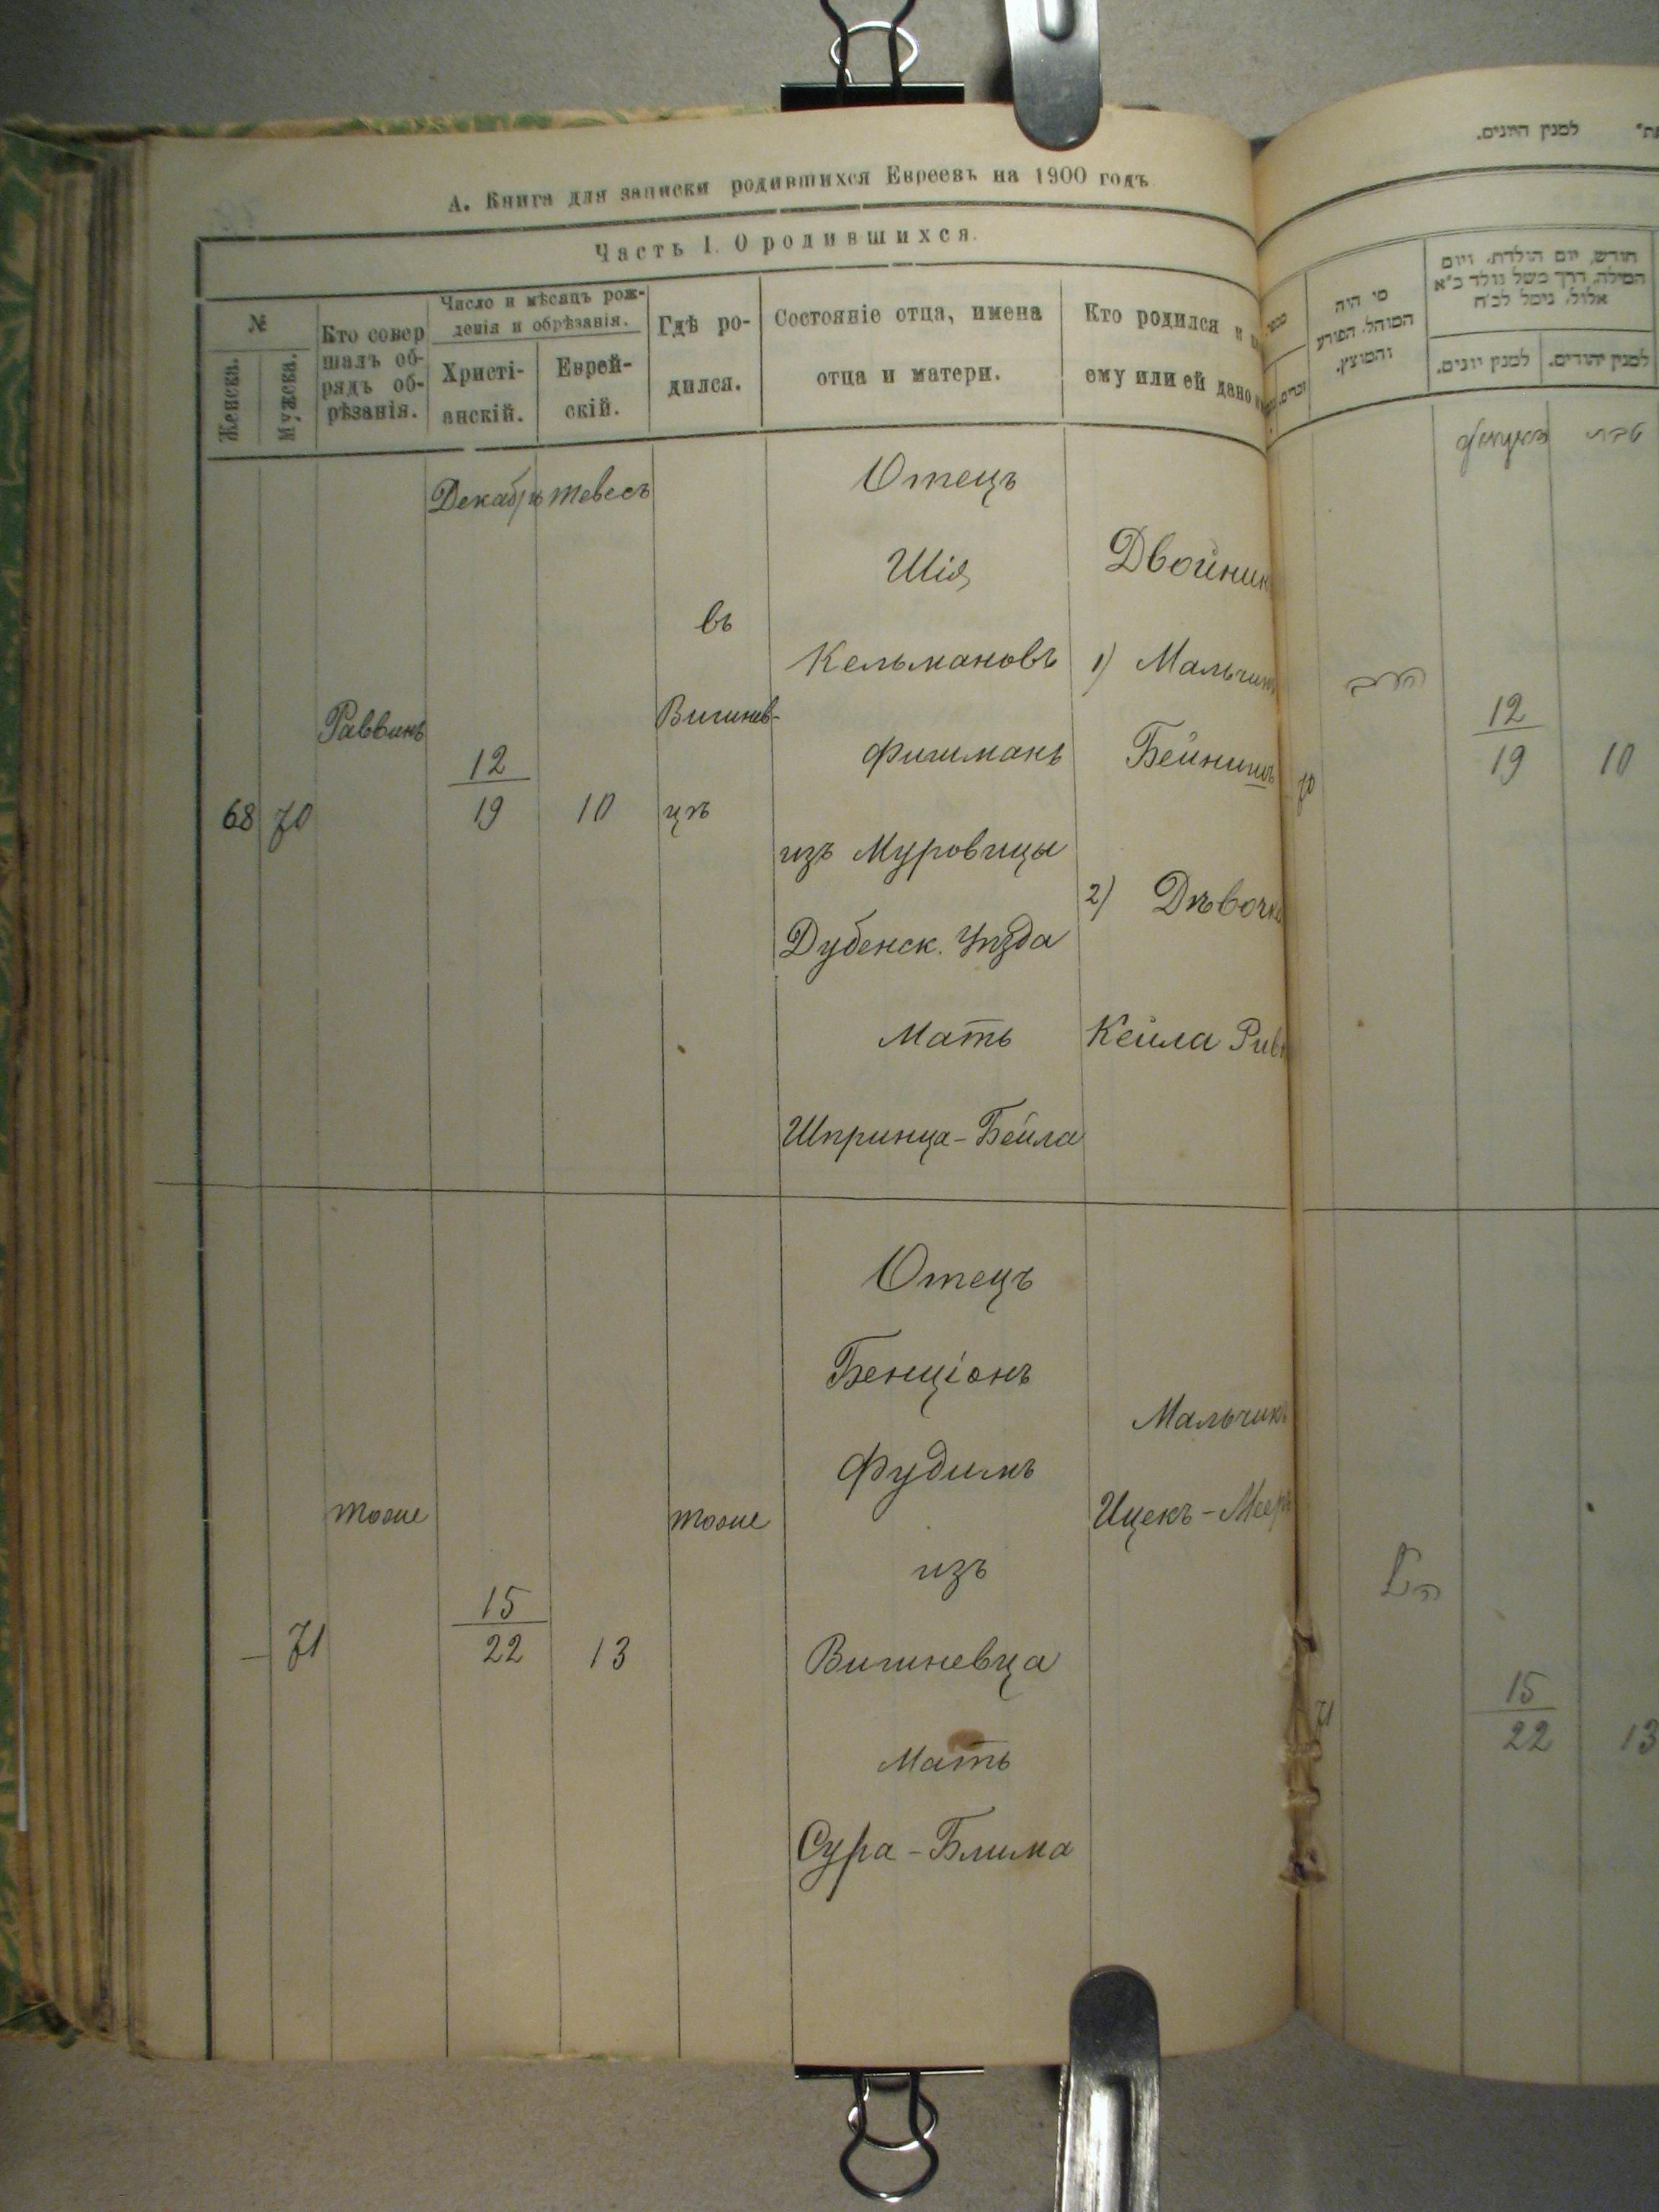 А. Книга для записки родившихся Евреевъ на 1900 годъ
Часть I. О родившихся.
№
Женска.
Мужска.
Кто совер
шалъ об-
рядъ об-
рѣзанія.
Число и мѣсяцъ рож-
денія и обрѣзанія.
Христі-
анскій.
Еврей-
скій.
Гдѣ ро-
дился.
Состояніе отца, имена
отца и матери.
Кто родился и
ему или ей дано
Декабрь
тевесъ
68
70
Раввинъ
12
19
10
въ
Вишнев-
цѣ
Отецъ
Шія
Кельмановъ
Фишманъ
изъ Муровицы
Дубенск. Уѣзда
Мать
Шпринца-Бейла
Двойник
1) Мальчикъ
Бейнишъ
2) Дѣвочка
Кейла Рив
—
71
тоже
15
22
13
тоже
Отецъ
Бенціонъ
Фудимъ
изъ
Вишневца
Мать
Сура-Блима
Мальчикъ
Ицекъ-Меер
למנין היונים.
מי היה
המוהל, הפורע
והמוצץ.
חודש, יום הולדת, ויום
המילה, דרך משל נולד כ"א
אלול, נימל לכ"ח
למנין יונים.
למנין יהודים.
טבת
70
12
19
10
71
15
22
13